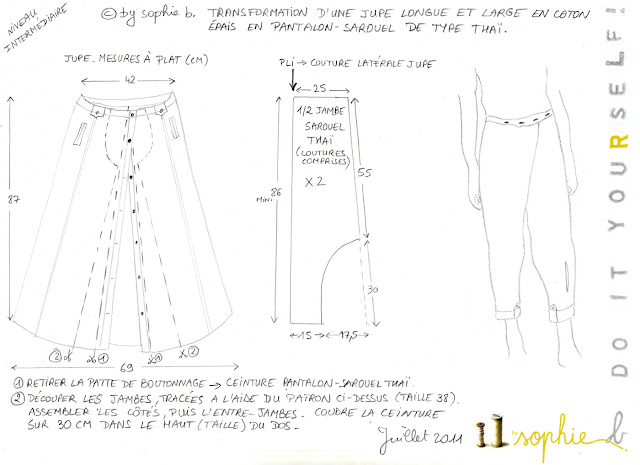 NIVEAU
INTERMÉDIAIRE
© by sophie b. TRANSFORMATION D'UNE JUPE LONGUE ET LARGE EN COTON
ÉPAIS EN PANTALON-SAROUEL DE TYPE THAÏ.
JUPE. MESURES À PLAT (CM)
42
87
② ① ① ②
69
PLI → COUTURE LATÉRALE JUPE
25
1/2 JAMBE
SAROUEL
THAÏ
(COUTURES
COMPRISES)
X 2
MINI. 86
55
30
15 17,5
① RETIRER LA PATTE DE BOUTONNAGE → CEINTURE PANTALON-SAROUEL THAÏ.
② DÉCOUPER LES JAMBES, TRACÉES A L'AIDE DU PATRON CI-DESSUS (TAILLE 38).
ASSEMBLER LES CÔTÉS, PUIS L'ENTRE-JAMBES. COUDRE LA CEINTURE
SUR 30 CM DANS LE HAUT (TAILLE) DU DOS.
Juillet 2011
sophie b.
DO IT YOURSELF!